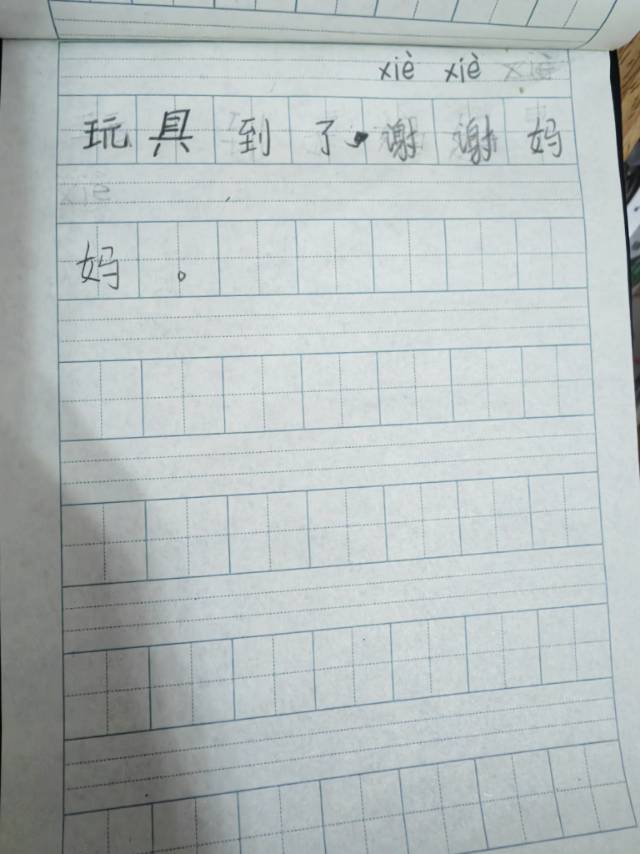 xiè xiè xiè
玩具到了，谢谢妈
妈。